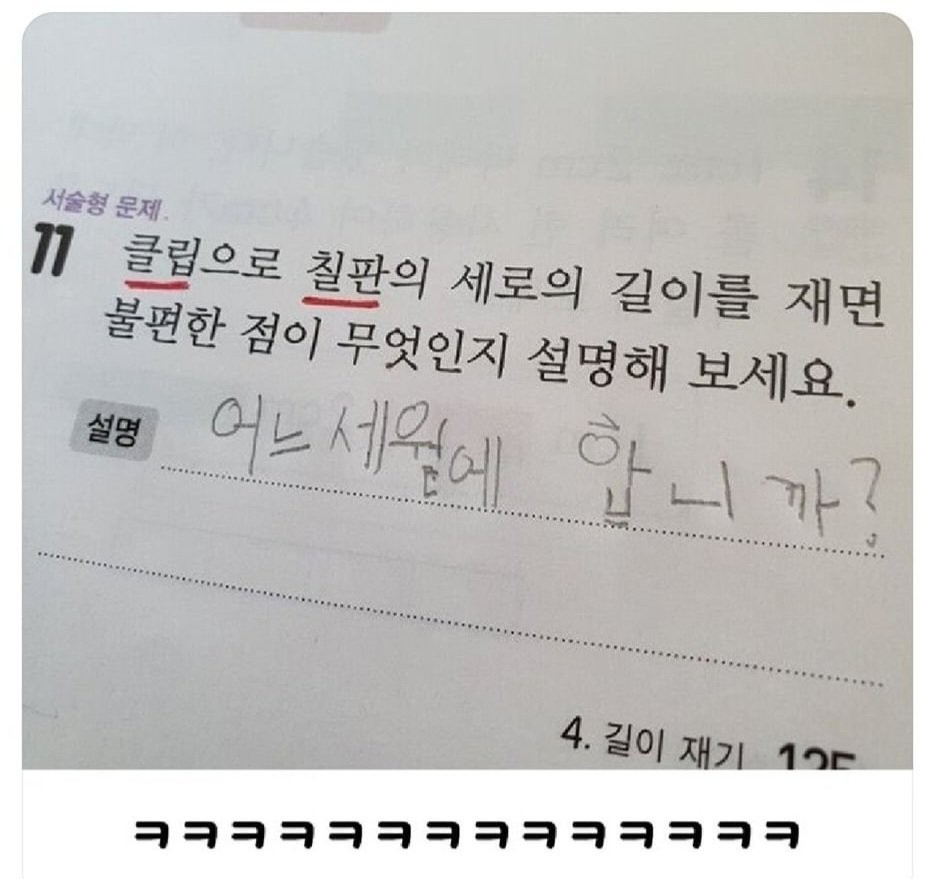 서술형 문제.
11 클립으로 칠판의 세로의 길이를 재면
불편한 점이 무엇인지 설명해 보세요.
설명 어느세월에 합니까?
4. 길이 재기
ㅋㅋㅋㅋㅋㅋㅋㅋㅋㅋㅋㅋㅋㅋ